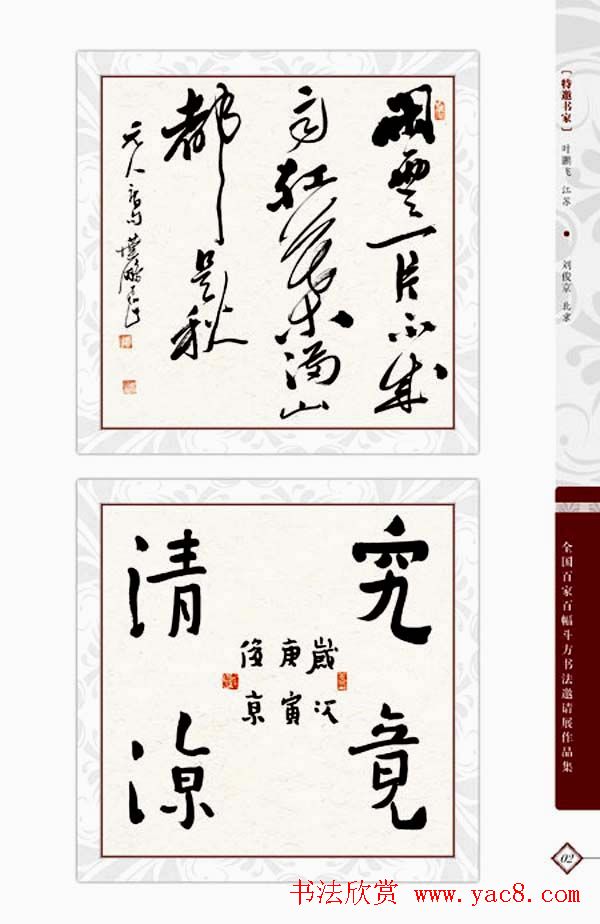 闲雲一片不成
雨红葉满山
都是秋
元人句 葉鹏飞
究竟
歲次
庚寅
俊京
清凉
[特邀书家] 叶鹏飞 江苏 ● 刘俊京 北京
全国百家百幅斗方书法邀请展作品集
02
书法欣赏 www.yac8.com